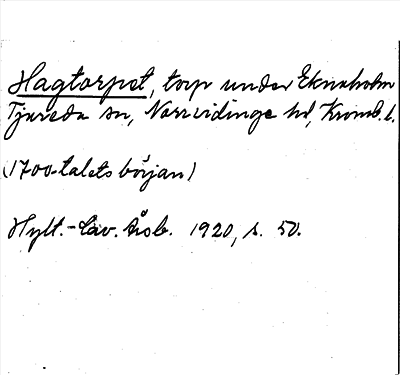 Hagtorpet, torp under Eknaholm
Tjureda sn, Norrvidinge hd, Kronob. l.
(1700-talets början)
Hylt.-Cav. Årsb. 1920, s. 50.